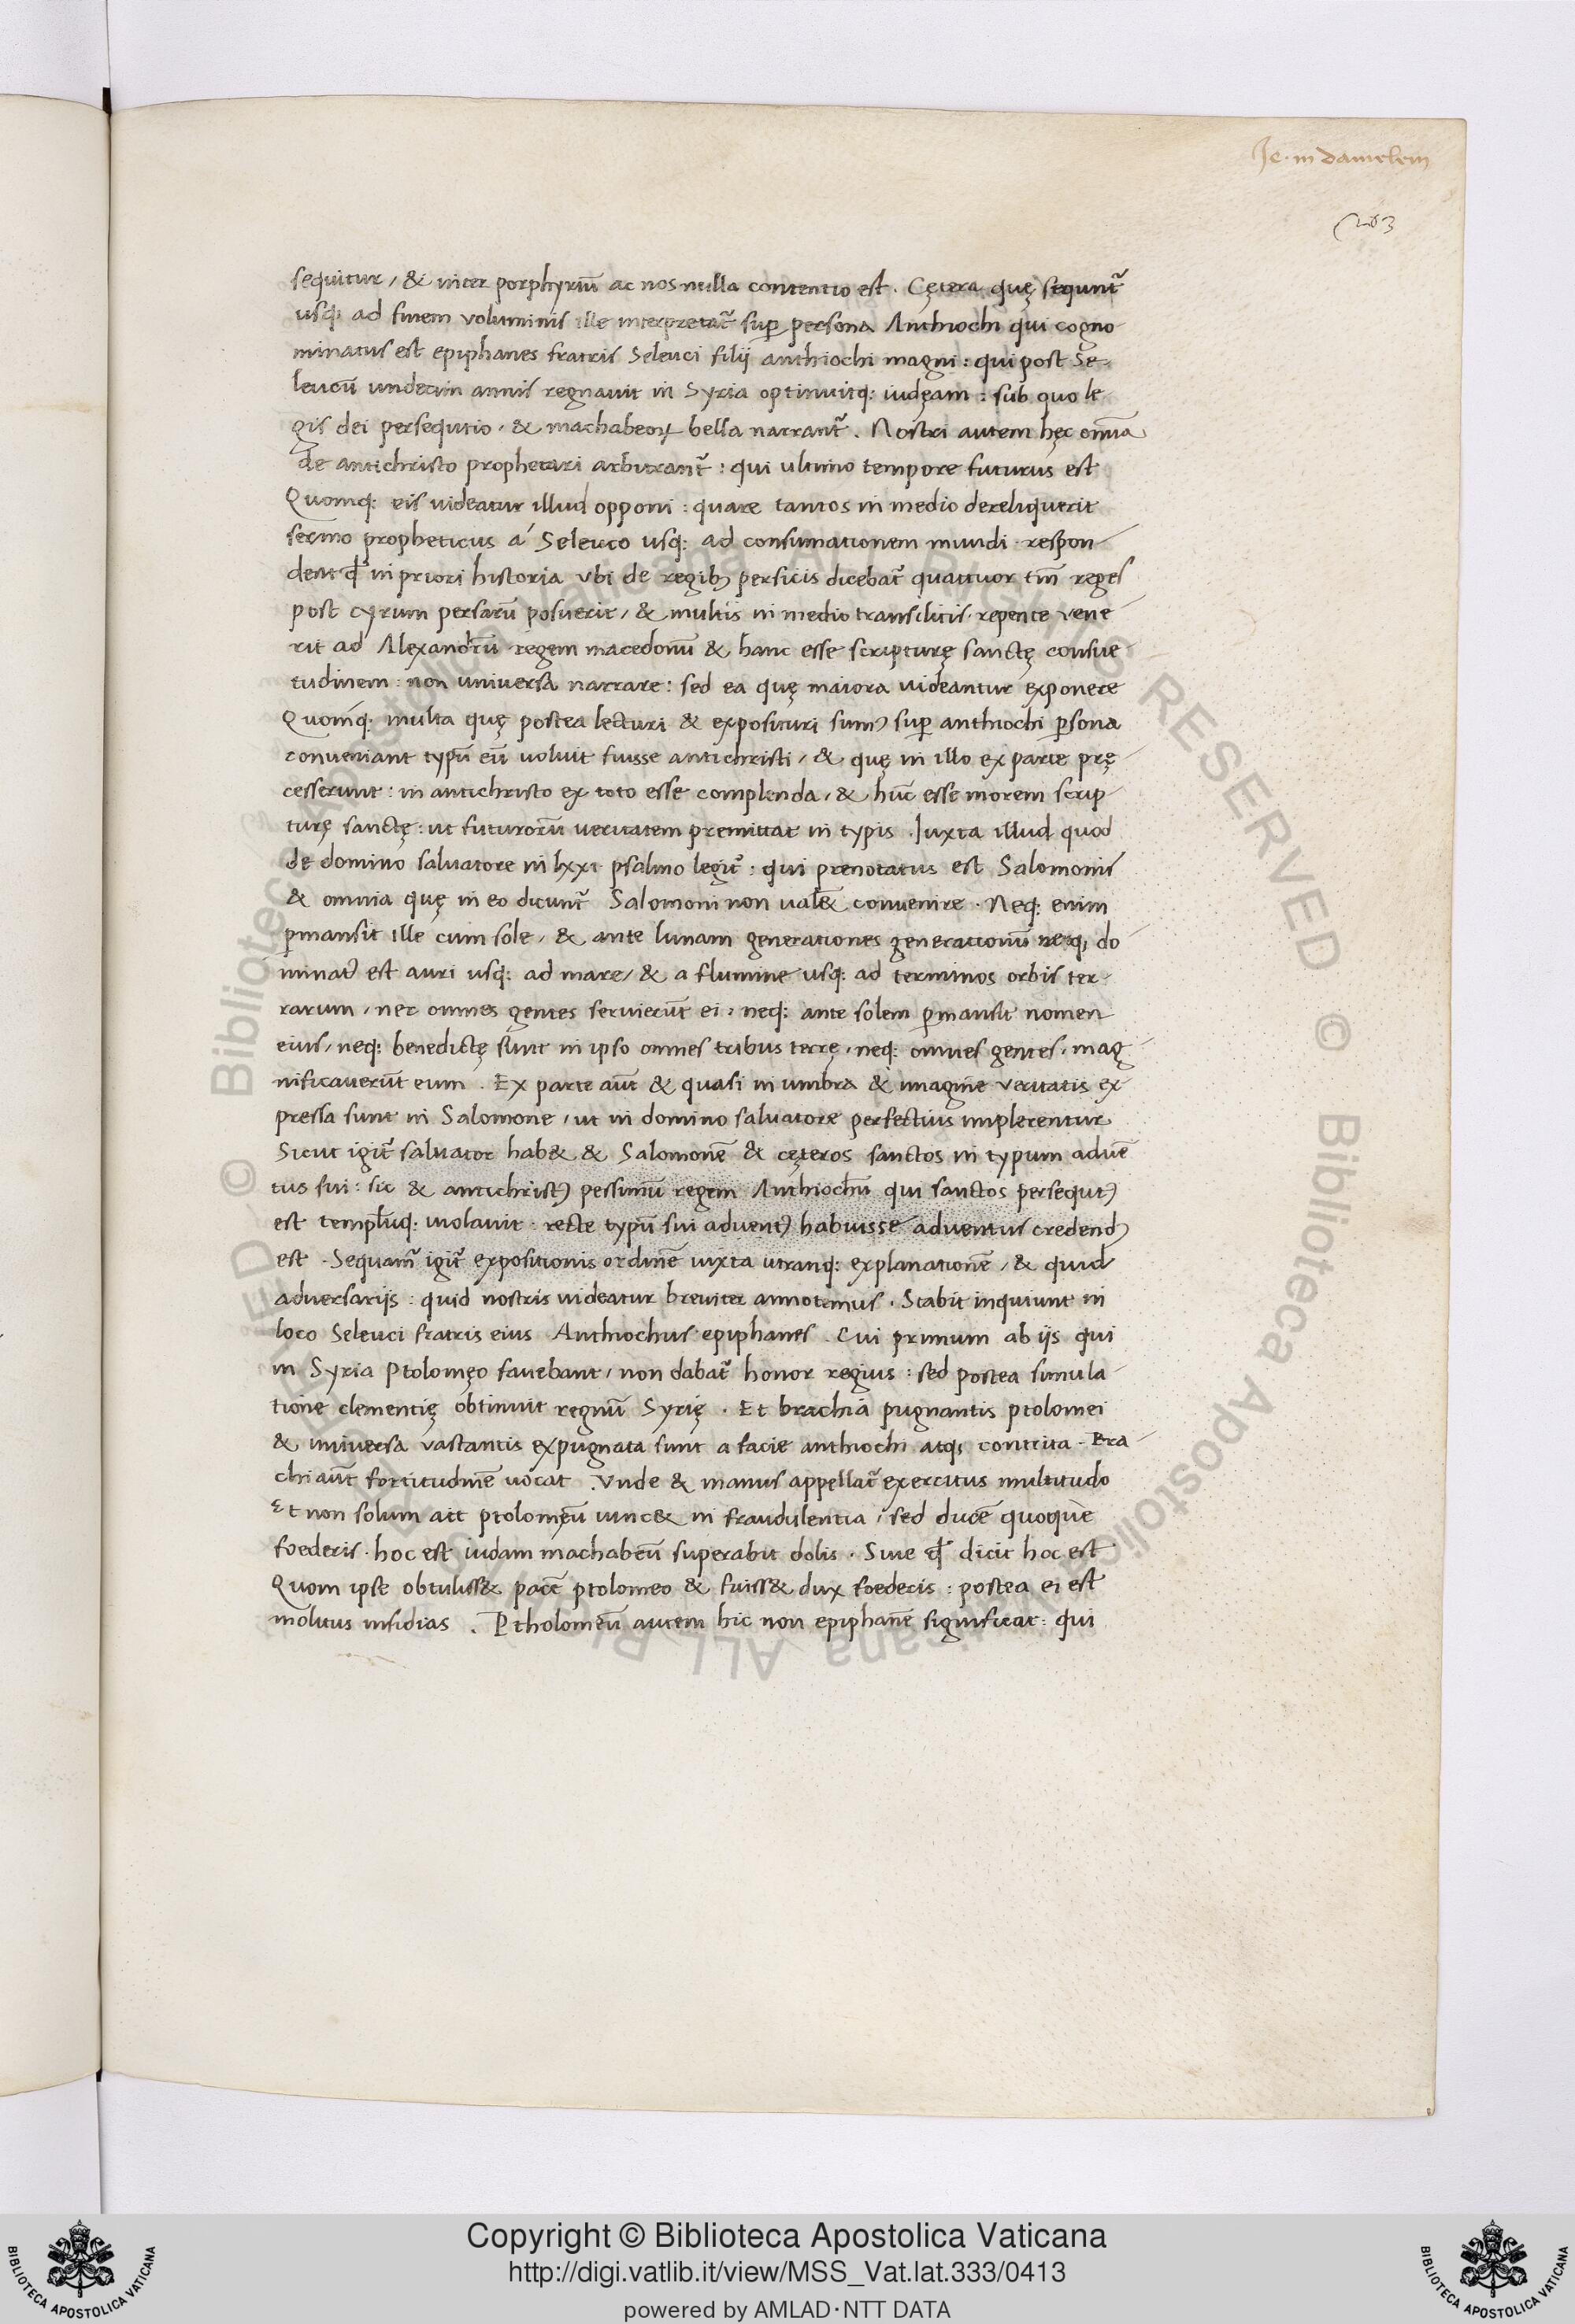 Je. in danielem
203
sequitur, & inter porphyriũ ac nos nulla contentio est. Cętera quę sequnt᷑
usq; ad finem voluminis ille interpretat᷑ sup̱ persona Anthiochi qui cogno-
minatus est epiphanes fratris Seleuci filij anthiochi magni: qui post Se-
leucũ undecim annis regnauit in Syria optinuitq; iudęam: sub quo le-
gis dei persequtio, & machabeoꝝ bella narrant᷑. Nostri autem hęc om̃ia
de antichristo prophetari arbitrant᷑: qui ultimo tempore futurus est
Quomq; eis uideatur illud opponi: quare tantos in medio dereliquerit
sermo propheticus á Seleuco usq; ad consumationem mundi. respon-
dent ꝙ in priori historia vbi de regibꝫ persicis dicebat᷑ quattuor tm̃ reges
post cyrum persarũ posuerit, & multis in medio transilitis. repente vene-
rit ad Alexandrũ regem macedonũ & hanc esse scripturę sanctę consue-
tudinem: non universa narrare: sed ea quę maiora uideantur exponere
Quom̃q; multa quę postea lecturi & exposituri sumꝰ sup̱ anthiochi ꝑsona
conveniant typũ eũ uoluit fuisse antichristi, & quę in illo ex parte prę-
cesserunt: in antichristo ex toto esse complenda, & hũc esse morem scrip-
turę sanctę: ut futurorũ veritatem premittat in typis. Juxta illud quod
de domino saluatore in lxxi psalmo legit᷑: qui prenotatus est Salomonis
& omnia quę in eo dicunt᷑ Salomoni non ual& convenire. Neq; enim
ꝑmansit ille cum sole, & ante lunam generationes generationũ neq; do-
minatꝰ est auri usq; ad mare, & a flumine usq; ad terminos orbis ter-
rarum, nec omnes gentes seruierũt ei, neq; ante solem ꝑmansit nomen
eius, neq; benedictę sunt in ipso omnes tribus terrę, neq; omnes gentes. mag-
nificauerũt eum. Ex parte aũt & quasi in umbra & imagine veritatis ex-
pressa sunt in Salomone, ut in domino saluatore perfectius implerentur
Sicut igit᷑ saluator hab& & Salomonẽ & cęteros sanctos in typum aduẽ-
tus sui: sic & antichristꝰ pessimũ regem Anthiochũ qui sanctos persequtꝰ
est templũq; uiolauit. recte typũ sui aduentꝰ habuisse aduentus credendꝰ
est. Sequam᷑ igit᷑ expositionis ordinẽ iuxta utranq; explanationẽ, & quid
adversarijs: quid nostris uideatur breuiter annotemus. Stabit inquiunt in
loco Seleuci fratris eius Anthiochus epiphanes. Cui primum ab ijs qui
in Syria Ptolomęo fauebant, non dabat᷑ honor regius: sed postea simula-
tione clementię obtinuit regnũ Syrię. Et brachia pugnantis ptolomei
& universa vastantis expugnata sunt a facie anthiochi atq; contrita. Bra-
chi aũt fortitudinẽ uocat. Vnde & manus appellat᷑ exercitus multitudo
Et non solum ait ptolomęũ uinc& in fraudulentia, sed ducẽ quoque
foederis. hoc est iudam machabeũ superabit dolis. Siue ꝙ dicit hoc est
Quom ipse obtuliss& pacẽ ptolomeo & fuiss& dux foederis: postea ei est
molitus insidias. Ptholomeũ autem hic non epiphanẽ significat: qui
Copyright © Biblioteca Apostolica Vaticana
http://digi.vatlib.it/view/MSS_Vat.lat.333/0413
powered by AMLAD·NTT DATA
BIBLIOTECA APOSTOLICA VATICANA
BIBLIOTECA APOSTOLICA VATICANA